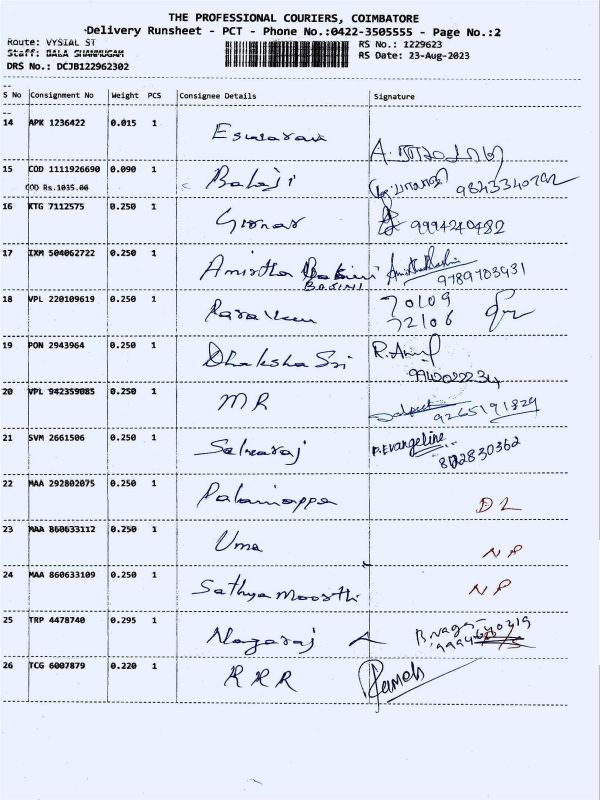 THE PROFESSIONAL COURIERS, COIMBATORE
Delivery Runsheet - PCT - Phone No.:0422-3505555 - Page No.:2
Route: VYSIAL ST
RS No.: 1229623
Staff: BALA SHANMUGAM
RS Date: 23-Aug-2023
DRS No.: DCJB122962302
S No Consignment No Weight PCS Consignee Details Signature
14 APK 1236422 0.015 1 Eswaran
15 COD 1111926690 0.090 1 Balaji
COD Rs.1035.00
16 KTG 7112575 0.250 1 9994240482
17 IXM 504062722 0.250 1 Amirtha
BAJINI 9789703931
18 VPL 220109619 0.250 1 70109
72106
19 PON 2943964 0.250 1 Dhaksha Sri
9940022234
20 VPL 942359085 0.250 1 MR
9265191829
21 SVM 2661506 0.250 1 Selvaraj P. Evangeline
8122830362
22 MAA 292802075 0.250 1 Palaniappa DL
23 MAA 860633112 0.250 1 Uma NP
24 MAA 860633109 0.250 1 Sathya Moorthi NP
25 TRP 4478740 0.295 1 Nagaraj
26 TCG 6007879 0.220 1 RRR Ramesh